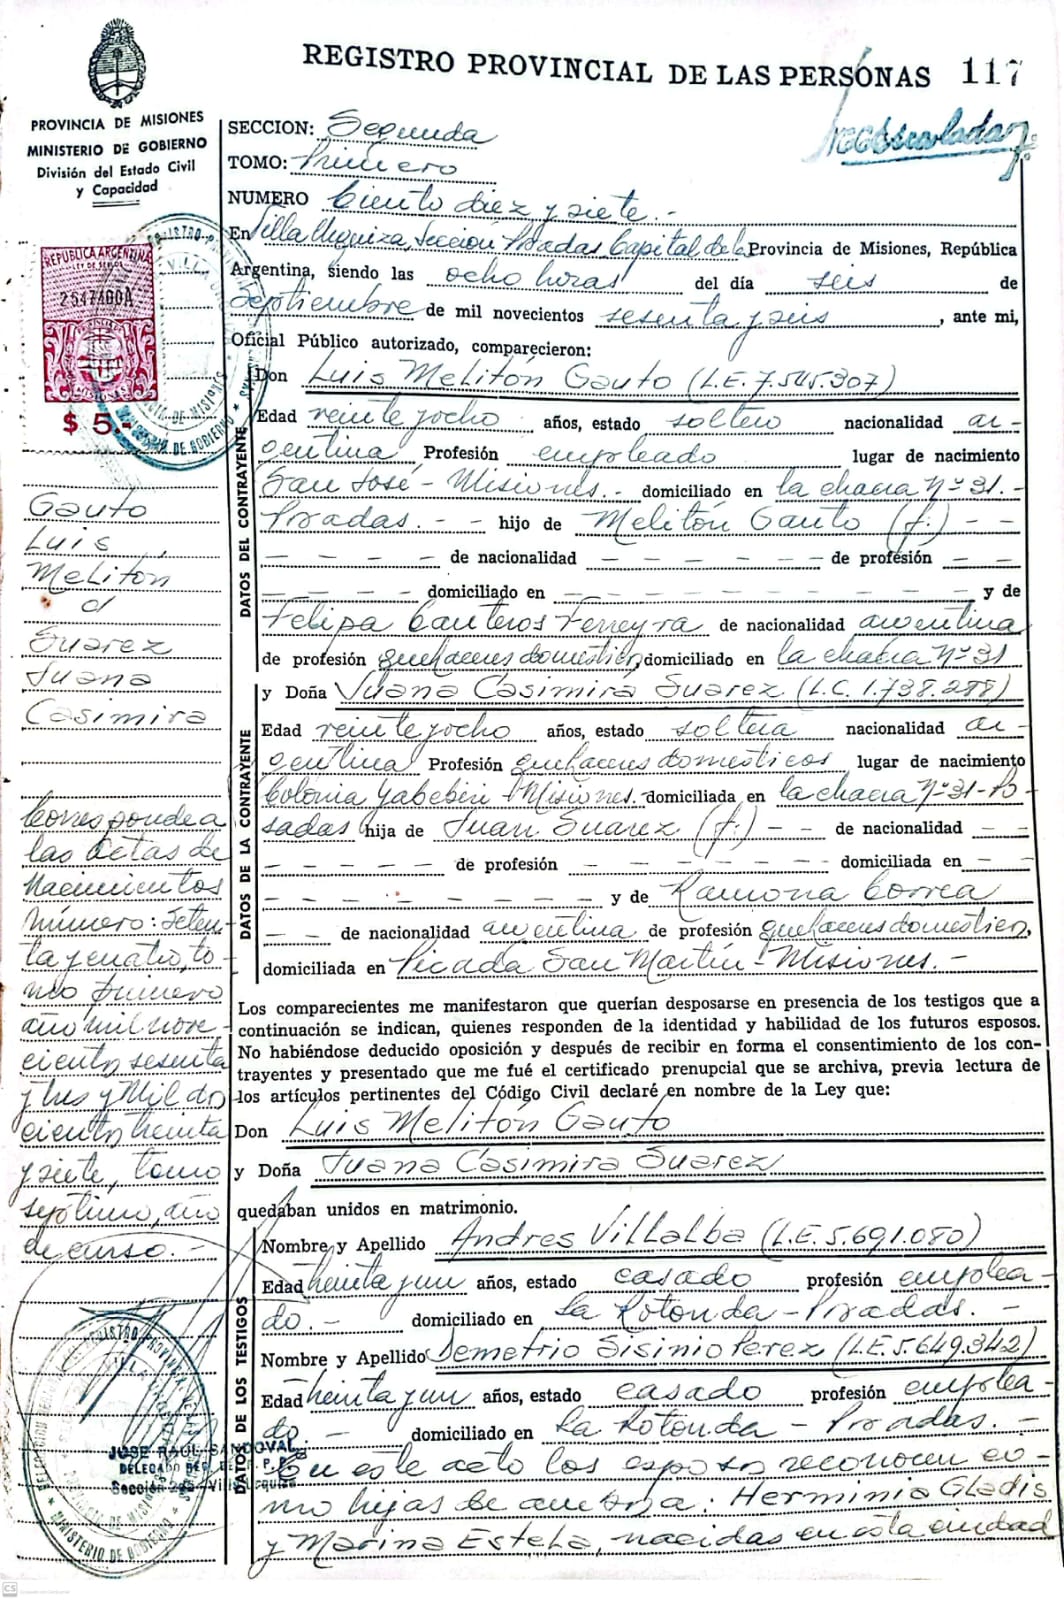 REGISTRO PROVINCIAL DE LAS PERSONAS 117
PROVINCIA DE MISIONES
MINISTERIO DE GOBIERNO
División del Estado Civil
y Capacidad
SECCION: Segunda
TOMO: Primero
NUMERO Ciento diez y siete.-
En Villa Urquiza, Sección Posadas Capital de la Provincia de Misiones, República
Argentina, siendo las ocho horas del día seis de
Septiembre de mil novecientos sesenta y seis, ante mi,
Oficial Público autorizado, comparecieron:
REPUBLICA ARGENTINA
LEY DE SELLOS
2547400A
$ 5.-
DATOS DEL CONTRAYENTE
Don Luis Melitón Gauto (L.E. 7.545.307)
Edad veinte y ocho años, estado soltero nacionalidad ar-
gentina Profesión empleado lugar de nacimiento
San José - Misiones.- domiciliado en la chacra Nº 31.-
Posadas. - - hijo de Melitón Gauto (f.) - -
- - - - - de nacionalidad - - - - - - - de profesión - -
- - - - - domiciliado en - - - - - - - - - y de
Felipa Canteros Ferreyra de nacionalidad argentina
de profesión quehaceres domésticos, domiciliado en la chacra Nº 31
DATOS DE LA CONTRAYENTE
y Doña Juana Casimira Suarez (L.C. 1.738.288)
Edad veinte y ocho años, estado soltera nacionalidad ar-
gentina Profesión quehaceres domésticos lugar de nacimiento
Colonia Yabebiri - Misiones.- domiciliada en la chacra Nº 31-Po-
sadas hija de Juan Suarez (f.) - - de nacionalidad - -
- - - - - de profesión - - - - - - - domiciliada en - -
- - - - - - - - y de Ramona Correa
- - de nacionalidad argentina de profesión quehaceres domésticos,
domiciliada en Picada San Martín - Misiones. -
Los comparecientes me manifestaron que querían desposarse en presencia de los testigos que a
continuación se indican, quienes responden de la identidad y habilidad de los futuros esposos.
No habiéndose deducido oposición y después de recibir en forma el consentimiento de los con-
trayentes y presentado que me fué el certificado prenupcial que se archiva, previa lectura de
los artículos pertinentes del Código Civil declaré en nombre de la Ley que:
Don Luis Melitón Gauto
y Doña Juana Casimira Suarez
quedaban unidos en matrimonio.
DATOS DE LOS TESTIGOS
Nombre y Apellido Andres Villalba (L.E. 5.691.080)
Edad treinta y un años, estado casado profesión emplea-
do. - domiciliado en La Rotonda - Posadas. -
Nombre y Apellido Demetrio Sisinio Perez (L.E. 5.649.342)
Edad treinta y un años, estado casado profesión emplea-
do. - domiciliado en La Rotonda - Posadas. -
En este acto los esposos reconocen co-
mo hijas de ambos: Herminia Gladis
y Marina Estela, nacidas en esta ciudad
Gauto
Luis
Melitón
c/
Suarez
Juana
Casimira
Corresponde a
las actas de
Nacimientos
Número: Seten-
ta y cuatro, to-
mo primero
año mil nove-
cientos sesenta
y tres y Mil dos
cientos treinta
y siete, tomo
septimo, año
en curso. -
JOSE RAUL SANDOVAL
DELEGADO DEL REG. P. P.
Sección 2da. Villa Urquiza
MINISTERIO DE GOBIERNO